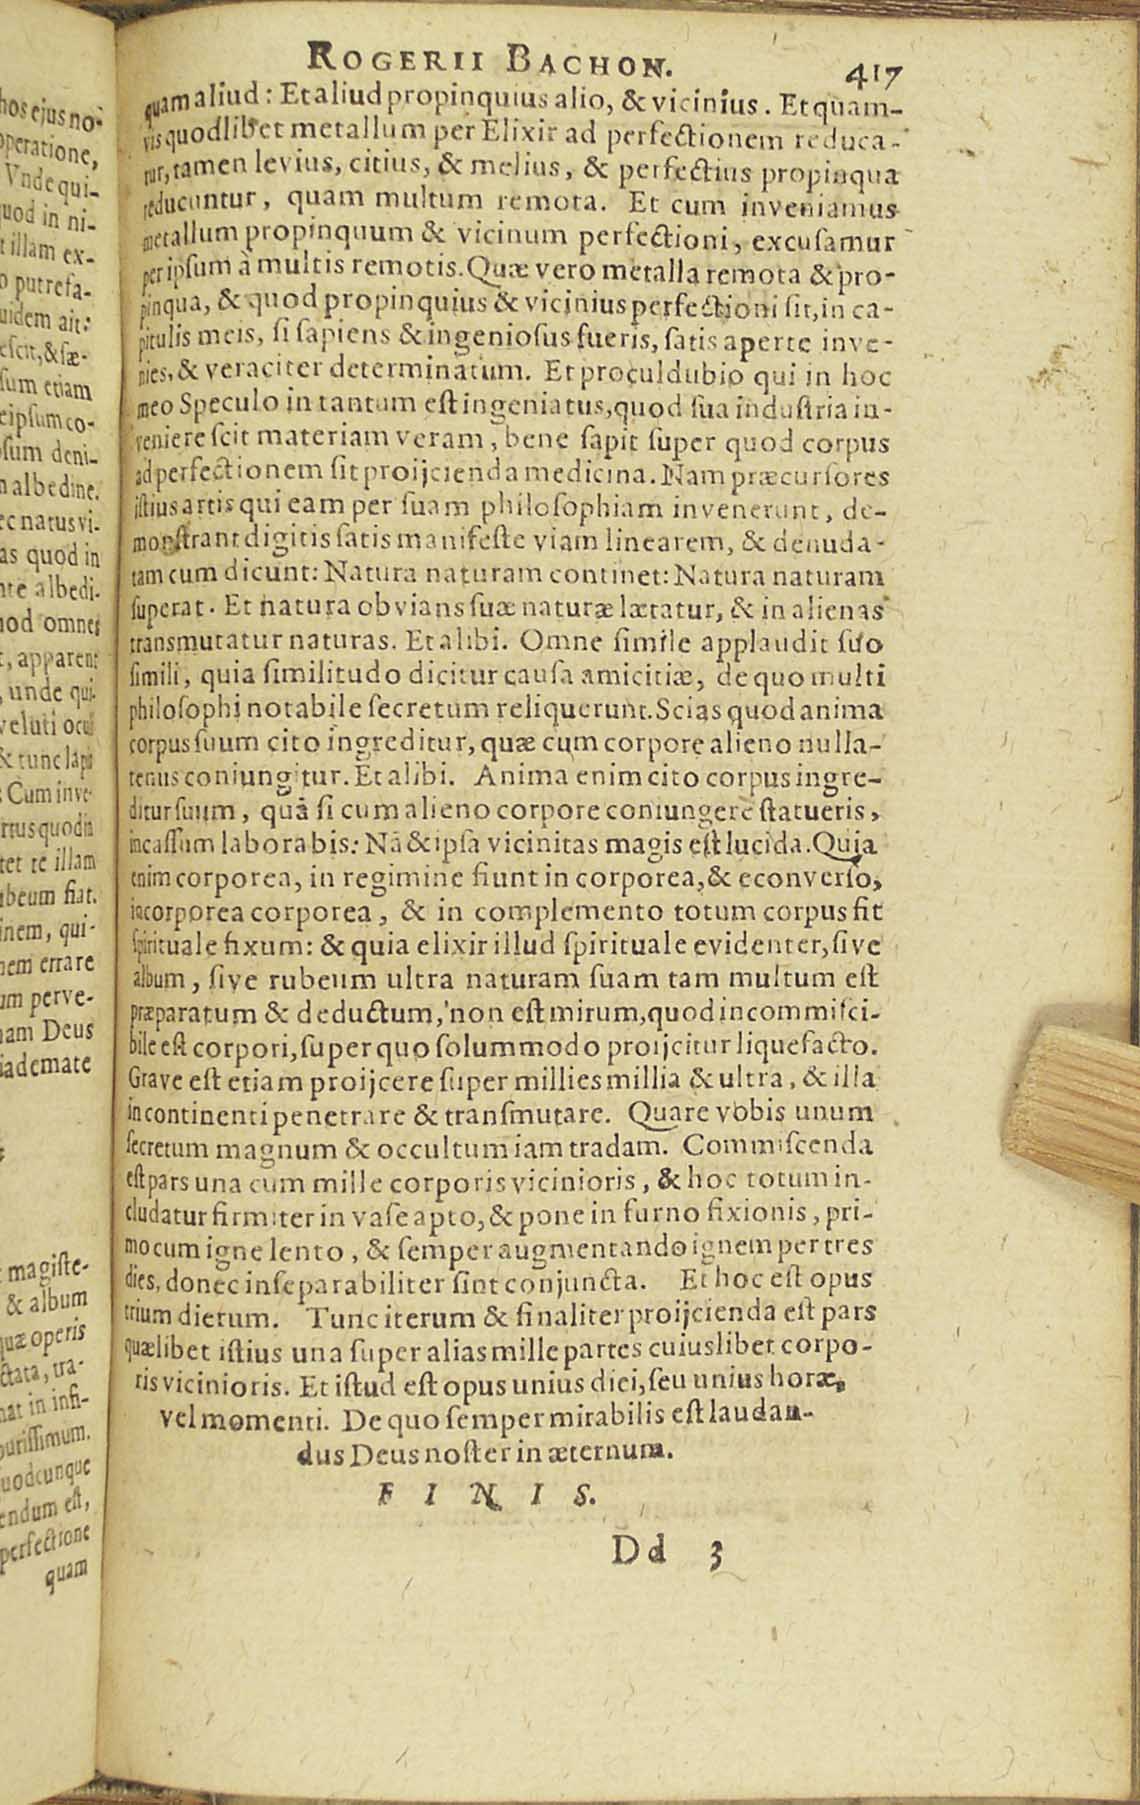 ROGERII BACHON. 417
quam aliud: Et aliud propinquius alio, & vicinius. Et quam-
vis quodlibet metallum per Elixir ad perfectionem reduca-
tur, tamen levius, citius, & melius, & perfectius propinqua
reducuntur, quam multum remota. Et cum inveniamus
metallum propinquum & vicinum perfectioni, excusamur
per ipsum à multis remotis. Quæ vero metalla remota & pro-
pinqua, & quod propinquius & vicinius perfectioni sit, in ca-
pitulis meis, si sapiens & ingeniosus fueris, satis aperte inve-
nies, & veraciter determinatum. Et proculdubio qui in hoc
meo Speculo in tantum est ingeniatus, quod sua industria in-
veniere scit materiam veram, bene sapit super quod corpus
ad perfectionem sit proijcienda medicina. Nam præcursores
istius artis qui eam per suam philosophiam invenerunt, de-
monstrant digitis satis manifeste viam linearem, & denuda-
tam cum dicunt: Natura naturam continet: Natura naturam
superat. Et natura obvians suæ naturæ lætatur, & in alienas
transmutatur naturas. Et alibi. Omne simile applaudit suo
simili, quia similitudo dicitur causa amicitiæ, de quo multi
philosophi notabile secretum reliquerunt. Scias quod anima
corpus suum cito ingreditur, quæ cum corpore alieno nulla-
tenus coniungitur. Et alibi. Anima enim cito corpus ingre-
ditur suum, quā si cum alieno corpore coniungere statueris,
incassum laborabis: Nā & ipsa vicinitas magis est lucida. Quia
enim corporea, in regimine fiunt incorporea, & econverso,
incorporea corporea, & in complemento totum corpus fit
spirituale fixum: & quia elixir illud spirituale evidenter, sive
album, sive rubeum ultra naturam suam tam multum est
præparatum & deductum, non est mirum, quod incommisci-
bile est corpori, super quo solummodo proijcitur liquefacto.
Grave est etiam proijcere super millies millia & ultra, & illa
incontinenti penetrare & transmutare. Quare vobis unum
secretum magnum & occultum iam tradam. Commiscenda
est pars una cum mille corporis vicinioris, & hoc totum in-
cludatur firmiter in vase apto, & pone in furno fixionis, pri-
mo cum igne lento, & semper augmentando ignem per tres
dies, donec inseparabiliter sint conjuncta. Et hoc est opus
trium dierum. Tunc iterum & finaliter proijcienda est pars
quælibet istius una super alias mille partes cuiuslibet corpo-
ris vicinioris. Et istud est opus unius diei, seu unius horæ,
vel momenti. De quo semper mirabilis est laudan-
dus Deus noster in æternum.
F I N I S.
Dd 3
hos ejus no-
operatione,
Vnde qui-
quod in ni-
illam ex-
putrefa-
uidem ait:
escit, & sæ-
sum etiam
eipsum co-
sum deni-
n albedine.
ec natus vi-
as quod in
nte albedi-
uod omnes
t, apparent
, unde qui-
veluti ocu
& tunc lapi
: Cum inve-
rtus quod in
tet te illam
ubeum fiat.
inem, qui-
nem errare
um perve-
nam Deus
iademate
magiste-
& album
quæ operis
ctata, tra-
nat in infi-
purissimum.
uodcunque
endum est,
perfectione
quam